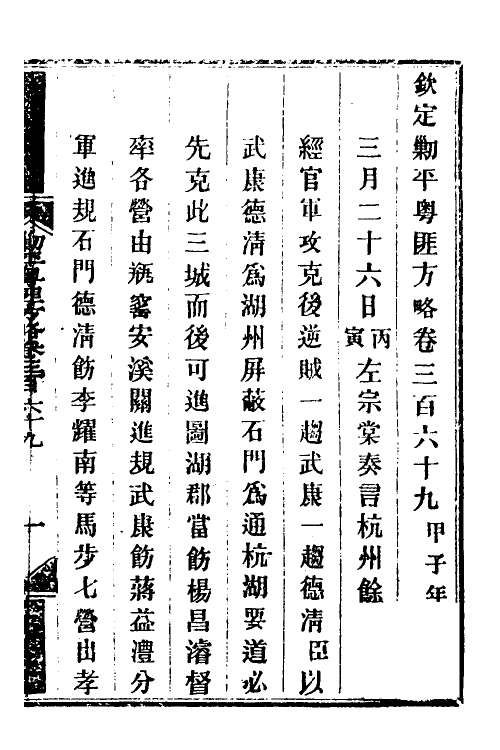 欽定勦平粵匪方略卷三百六十九甲子年
三月二十六日丙寅左宗棠奏言杭州餘
經官軍攻克後逆賊一趨武康一趨德清臣以
武康德清爲湖州屏蔽石門爲通杭湖要道必
先克此三城而後可進圖湖郡當飭楊昌濬督
率各營由瓶窰安溪關進規武康飭蔣益澧分
軍進規石門德清飭李耀南等馬步七營由孝
六十九
一